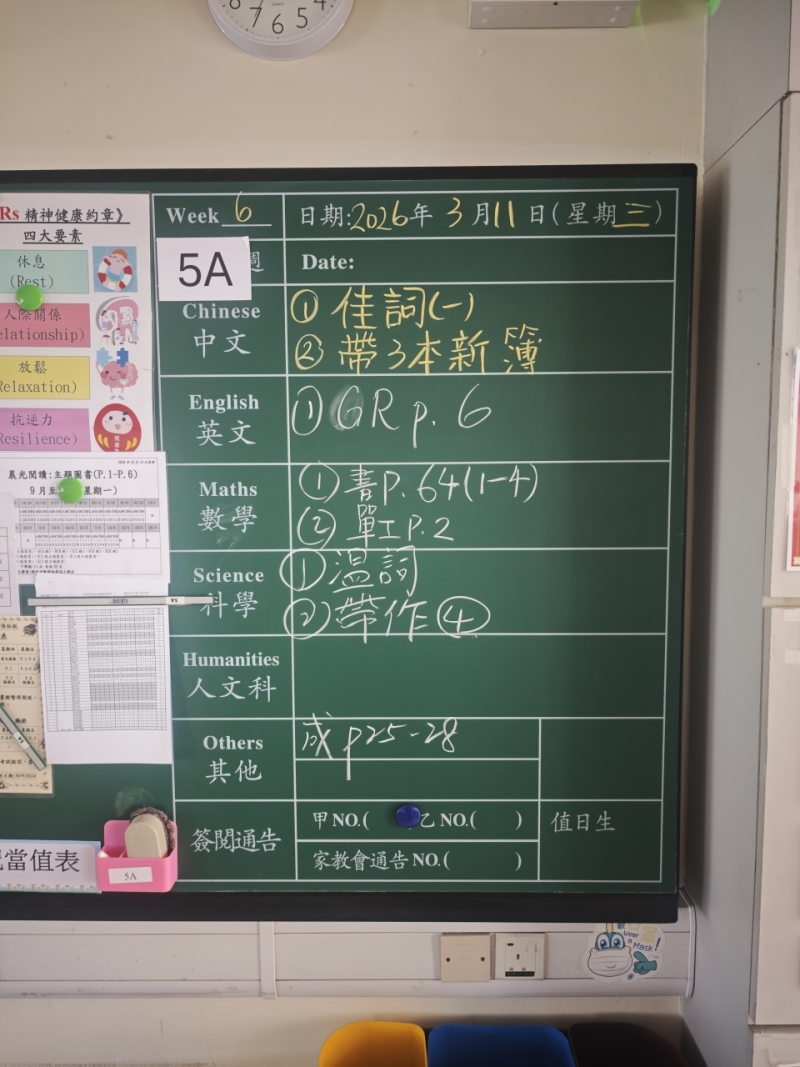 8 7 6 5 4
Rs 精神健康約章》
四大要素
休息
(Rest)
人際關係
elationship)
放鬆
elaxation)
抗逆力
esilience)
晨光閱讀:主題圖書(P.1-P.6)
9月至 星期一)
5A
Week 6
週
日期:2026年 3 月 11 日(星期三)
Date:
Chinese
中文
① 佳詞(一)
② 帶3本新簿
English
英文
① GR p. 6
Maths
數學
① 書P. 64(1-4)
② 單工P.2
Science
科學
① 溫詞
② 帶作④
Humanities
人文科
Others
其他
成 p25-28
簽閱通告
甲 NO.( 乙 NO.( )
家教會通告 NO.( )
值日生
當值表
5A
Wear a Mask!